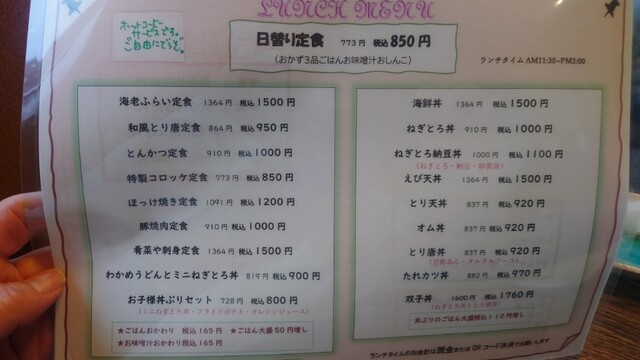 LUNCH MENU
ホットコーヒー
サービスです。
ご自由にどうぞ。
日替り定食 773円 税込850円
(おかず3品ごはんお味噌汁おしんこ)
ランチタイムAM11:30~PM2:00
海老ふらい定食 1364円 税込1500円
和風とり唐定食 864円 税込950円
とんかつ定食 910円 税込1000円
特製コロッケ定食 773円 税込850円
ほっけ焼き定食 1091円 税込1200円
豚焼肉定食 910円 税込1000円
肴菜や刺身定食 1364円 税込1500円
わかめうどんとミニねぎとろ丼 819円 税込900円
お子様丼ぶりセット 728円 税込800円
(ミニねぎとろ丼・フライドポテト・オレンジジュース)
★ごはんおかわり 税込165円 ★ごはん大盛50円増し
★お味噌汁おかわり税込165円
海鮮丼 1364円 税込1500円
ねぎとろ丼 910円 税込1000円
ねぎとろ納豆丼 1000円 税込1100円
(ねぎとろ・納豆・卵黄身)
えび天丼 1364円 税込1500円
とり天丼 837円 税込920円
オム丼 837円 税込920円
とり唐丼 837円 税込920円
たれカツ丼 882円 税込970円
双子丼 1600円 税込1760円
丼ぶりのごはん大盛税込110円増し
ランチタイムのお会計は現金またはQRコード決済でお願いします